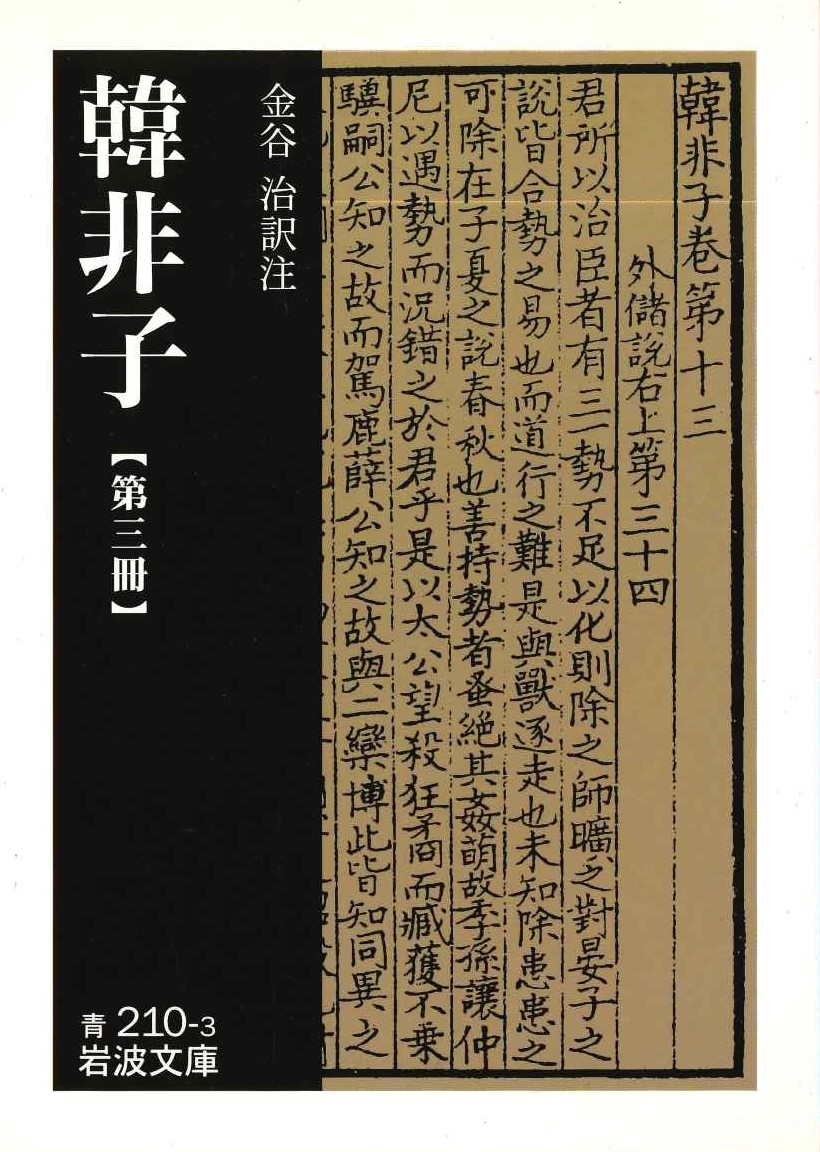 韓非子卷第十三
外儲說右上第三十四
君所以治臣者有三一勢不足以化則除之師曠之對晏子之
說皆合勢之易也而道行之難是與獸逐走也未知除患患之
可除在子夏之說春秋也善持勢者蚤絕其姦萌故季孫讓仲
尼以遇勢而況錯之於君乎是以太公望殺狂矞而臧獲不乗
驥嗣公知之故而駕鹿薛公知之故與二欒博此皆知同異之
金谷 治訳注
韓非子
【第三冊】
青 210-3
岩波文庫